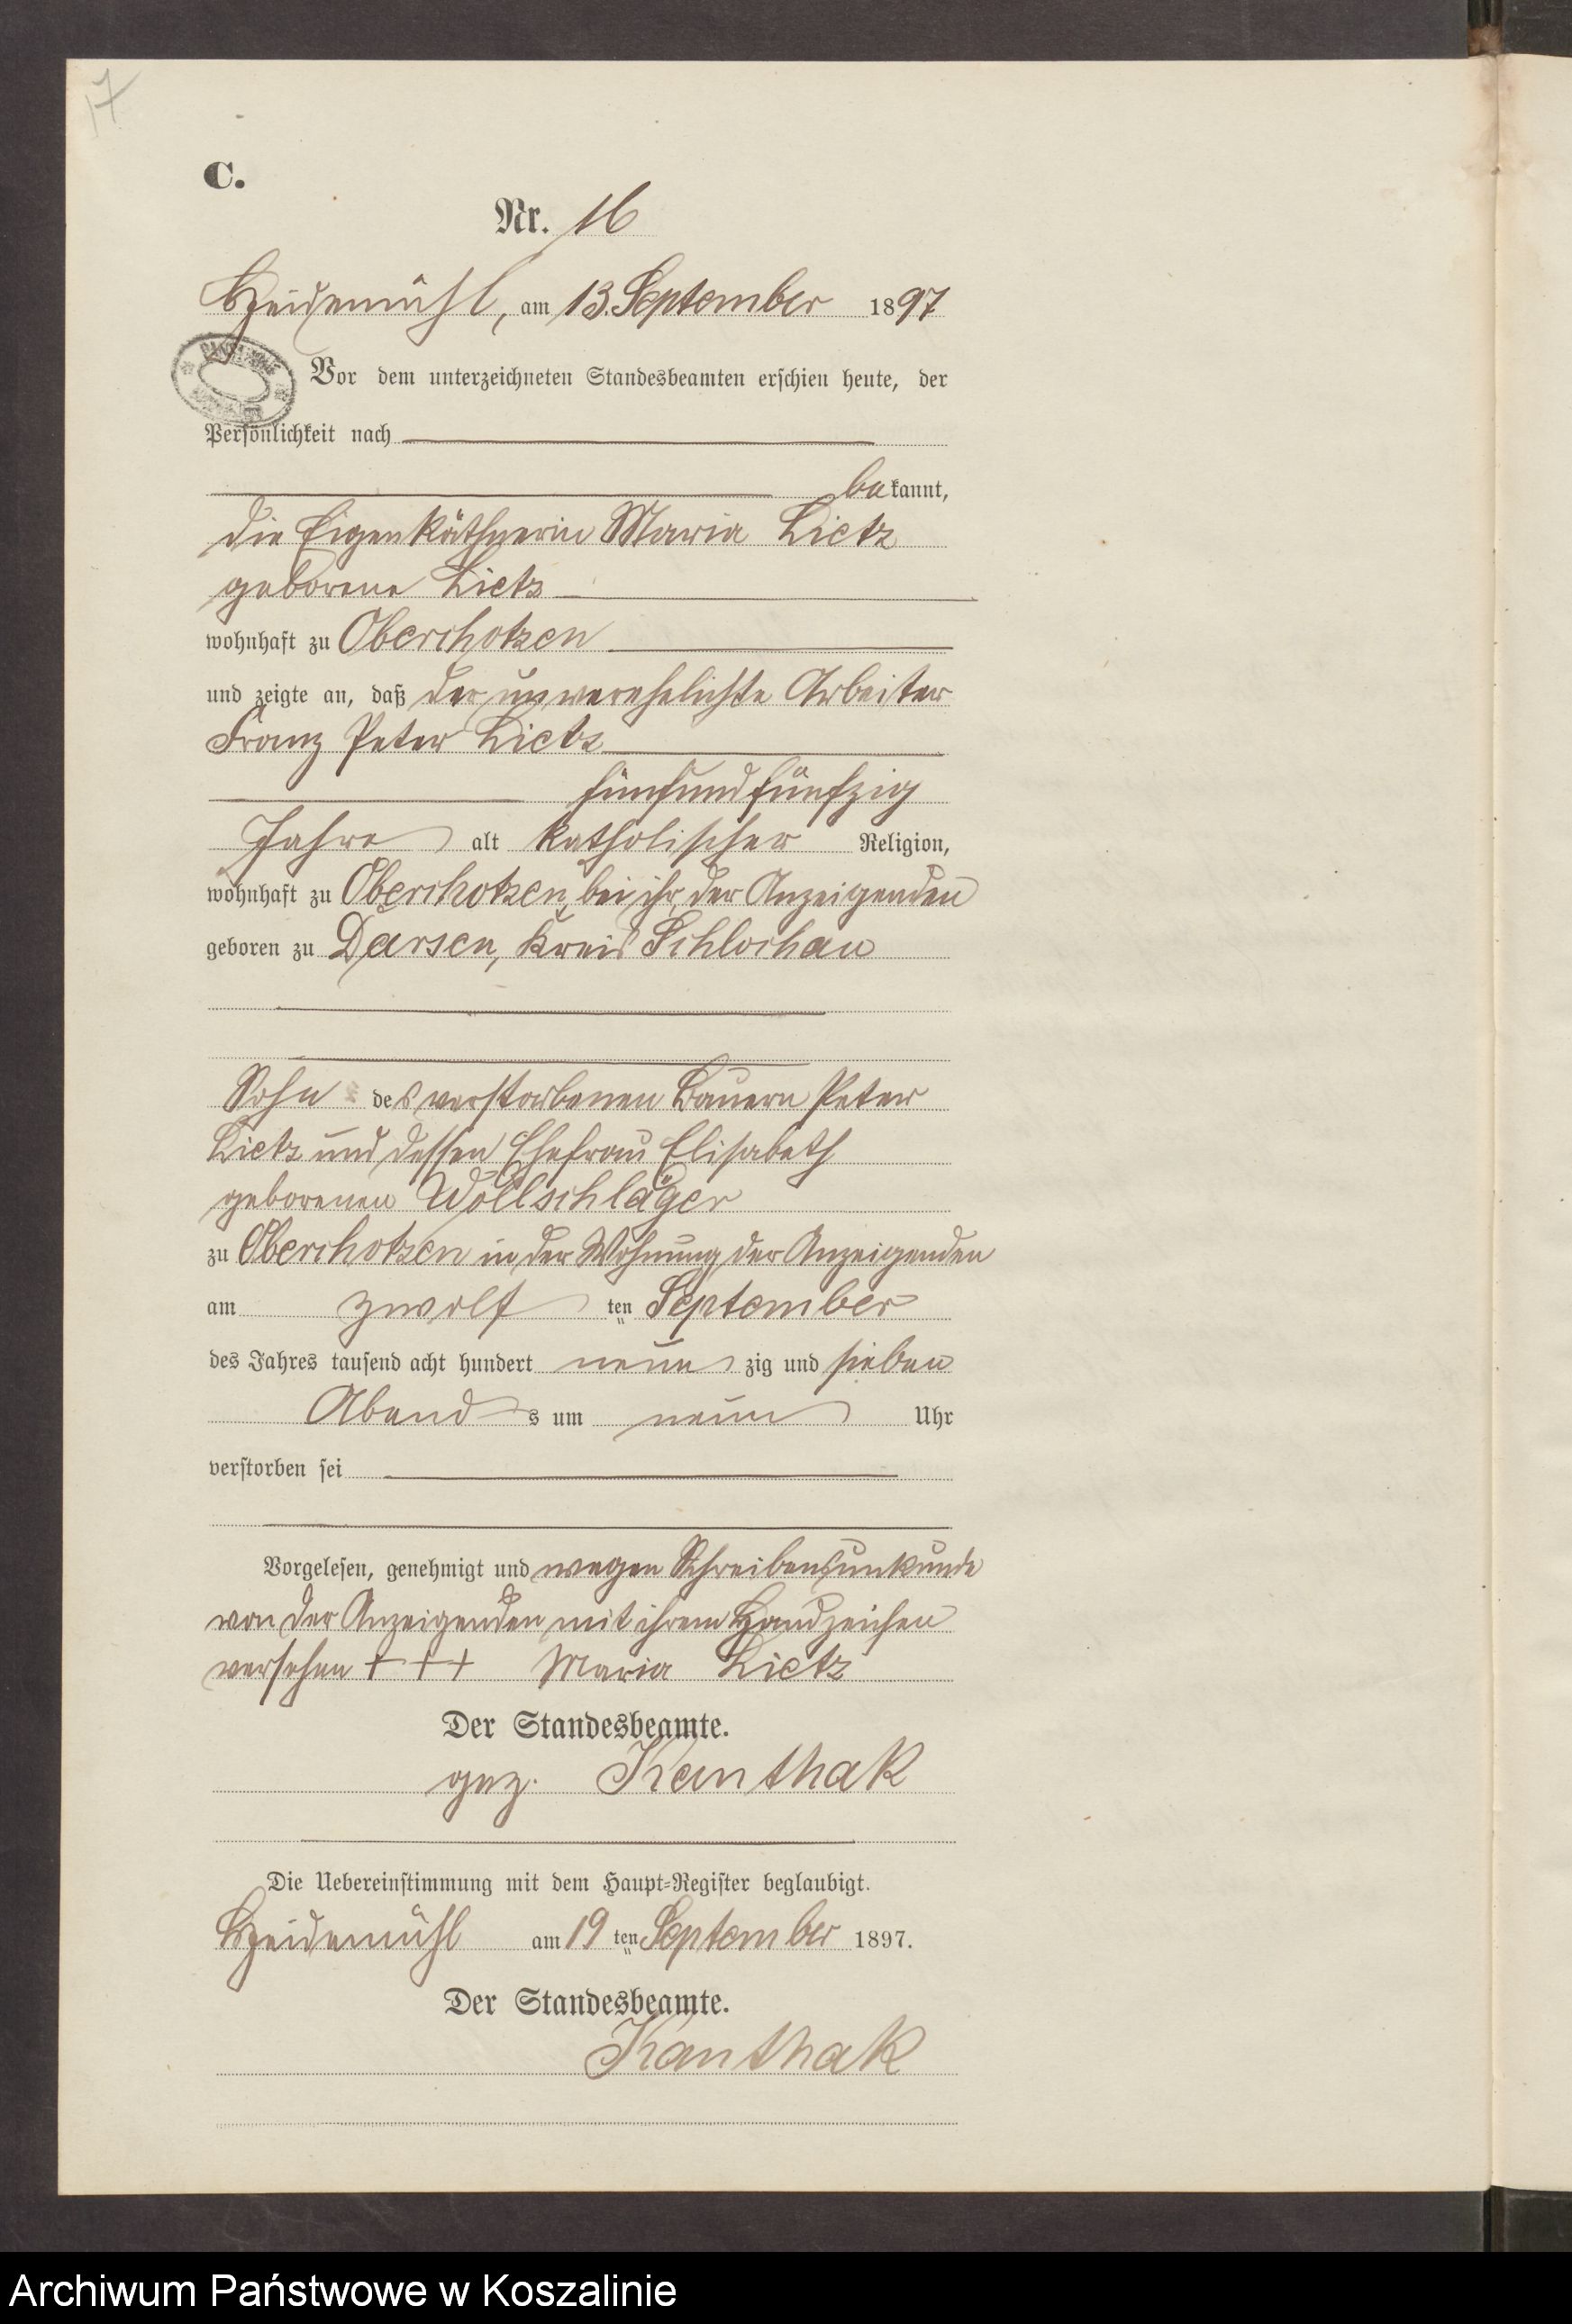 17
C.
Nr. 16
Heidemühl, am 13. September 1897
Vor dem unterzeichneten Standesbeamten erschien heute, der
Persönlichkeit nach
bekannt,
die Eigenkäthnerin Maria Lietz
geborene Lietz
wohnhaft zu Oberchotzen
und zeigte an, daß der unverehelichte Arbeiter
Franz Peter Lietz
fünfundfünfzig
Jahre alt katholischer Religion,
wohnhaft zu Oberchotzen, bei ihr, der Anzeigenden
geboren zu Darsen, Kreis Schlochau
Sohn des verstorbenen Bauern Peter
Lietz und dessen Ehefrau Elisabeth
geborenen Wollschläger
zu Oberchotzen in der Wohnung der Anzeigenden
am zwölf ten September
des Jahres tausend acht hundert neun zig und sieben
Abend s um neun Uhr
verstorben sei
Vorgelesen, genehmigt und wegen Schreibensunkunde
von der Anzeigenden mit ihrem Handzeichen
versehen + + + Maria Lietz
Der Standesbeamte.
gez. Kanthak
Die Uebereinstimmung mit dem Haupt-Register beglaubigt.
Heidemühl am 19 ten September 1897.
Der Standesbeamte.
Kanthak
Archiwum Państwowe w Koszalinie